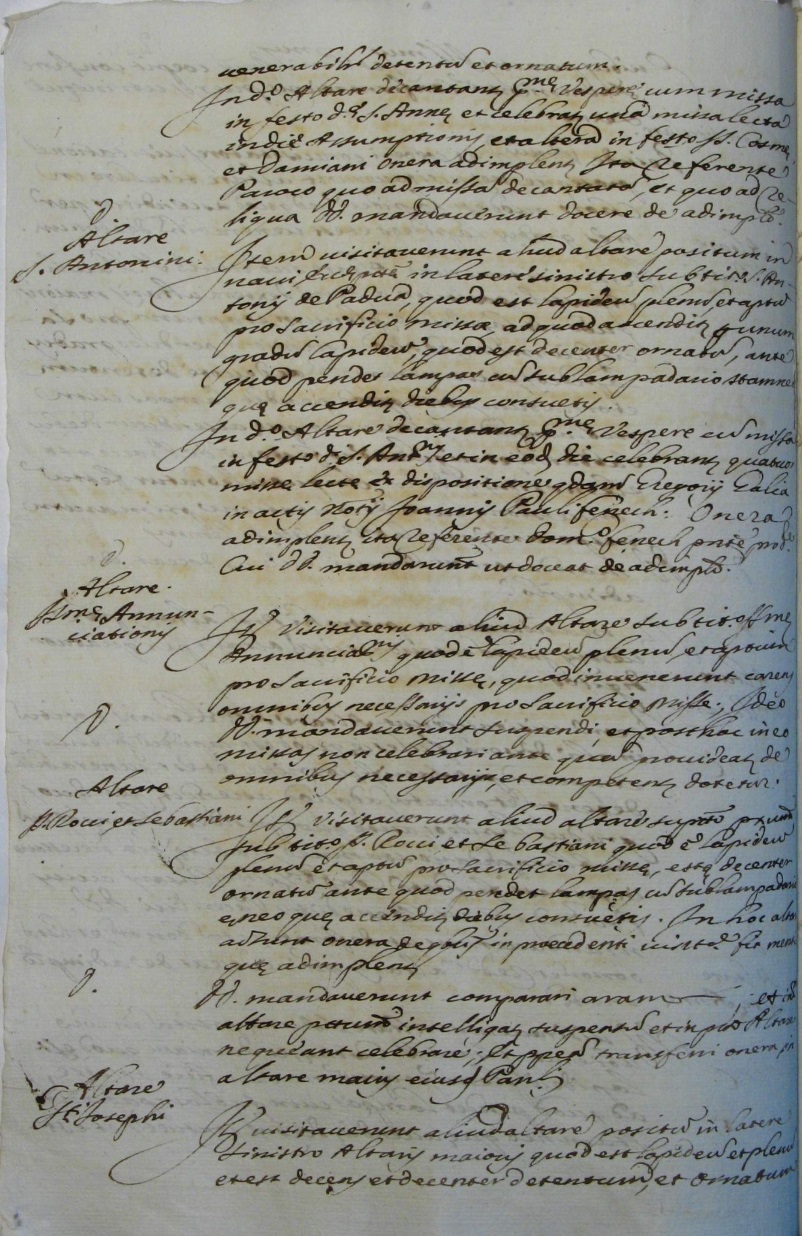 venerabilr detentũ et ornatum.
In d.º Altare decantantʒ p.mę Vesperę cum missa
in festo d.ę S. Annę et celebratʒ una missa lecta
in die Assumptionis, et altera in festo SS. Cosmę
et Damiani onera adimplentʒ Ita referente
Paroco quo ad missã decantatã, et quo ad re-
liqua dd. mandaverunt docere de adimplto.
d.
Altare
S. Antonini.
Item visitaverunt aliud altare positum in
navi in latere sinistro sub tit.º S. An-
tonij de Padua, quod est lapideũ plenũ, et aptũ
pro sacrificio missæ, ad quod ascenditʒ p unum
gradũ lapideũ, quod est decenter ornatũ, ante
quod pendet lampas cũ sublampadario stamneo
quę accenditʒ diebus consuetis.
In d.º Altare decantantʒ p.mę Vesperę cũ missa
in festo d.i S. Ant.ij et in eod̃ die celebrantʒ quatuor
missę lectę ex dispositione qdam Gregorij Galia
in actis Not.ij Joannis Pauli fenech. Onera
adimplentʒ ita referente Dom.º fenech pnte prod.e
Cui dd. mandarunt ut doceat de adimplto.
d.
Altare
SSmę Annun-
ciationis
Itʒ Visitaverunt aliud Altare sub tit.º SSmę
Annunciab.nis quod ẽ lapideũ plenũ, et aptum
pro sacrificio missę, quod invenerunt carens
omnibus necessarijs pro sacrificio missę. Ideo
D.
dd. mandaverunt suspendi, et posthac in eo
missas non celebrari ante quã provideatʒ de
omnibus necessarijs, et competentʒ dotetur.
Altare
SS. Rocci, et Sebastiani
Itʒ Visitaverunt aliud altare
sub tit.º SS. Rocci et Sebastiani quod ẽ lapideũ
plenũ et aptũ pro sacrificio missę, estq decenter
ornatũ ante quod pendet lampas cũ sublampadario
ęneo quę accenditʒ diebus consuetis. In hoc altari
adsunt onera de qbus in precedenti visit.e fit mentio
quę adimplentʒ
D.
dd. mandaverunt comparari aram, et
altare intelligatʒ suspensũ et in Altare
nequeant celebrare; Et transferri onera in
altare maius eiusd Par.lis
Altare
S.ti Josephi
Itʒ visitaverunt aliud altare positũ in latere
sinistro Altaris maioris quod est lapideũ et plenũ
et est decens et decenter detentum, et ornatum